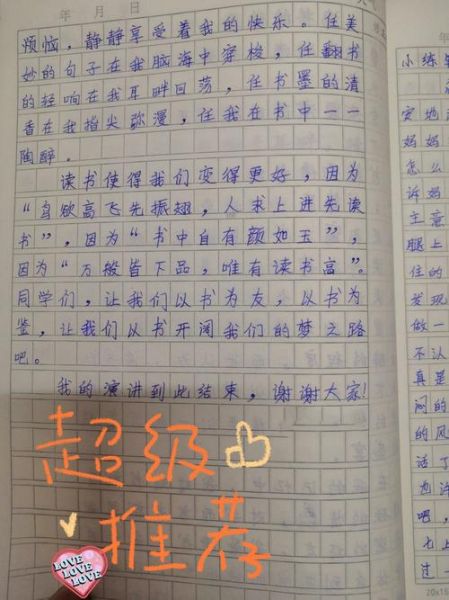 年 月 日
烦恼,静静享受着我的快乐。任美
妙的句子在我脑海中穿梭,任翻书
的轻响在我耳畔回荡,任书墨的清
香在我指尖弥漫,任我在书中一一
陶醉.
读书使得我们变得更好,因为
“鸟欲高飞先振翅,人求上进先读
书”,因为“书中自有颜如玉”,
因为“万般皆下品,唯有读书高”。
同学们,让我们以书为友,以书为
鉴,让我们以书开阔我们的梦之路
吧。
我的演讲到此结束,谢谢大家!
超级
推荐
LOVE
LOVE
LOVE
小练
安地
妈妈
怎么
诉妈
主意
腿上
住的
发现
做一
不认
真是
闷的
的风
话了
也许
吧,
七上
过一